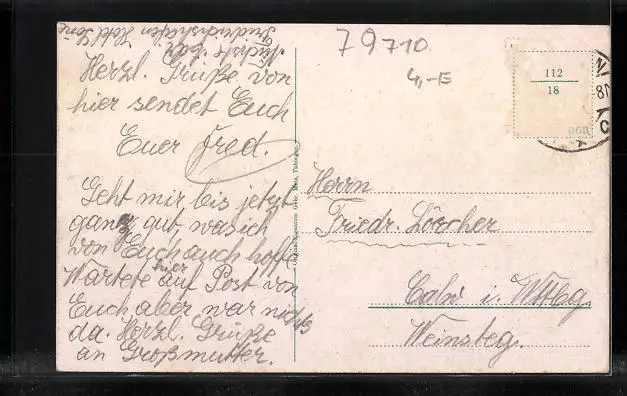 Nächste Adr.
Friedrichshafen Hotel
Herzl. Grüße von
hier sendet Euch
Euer Fred.
Geht mir bis jetzt
ganz gut, was ich
von Euch auch hoffe
Wartete hier auf Post von
Euch aber war nichts
da. Herzl. Grüße
an Großmutter.
79710
4,-E
112
18
DGB
Herrn
Friedr. Lörcher
Calw i. Wttbg.
Weinsteg.